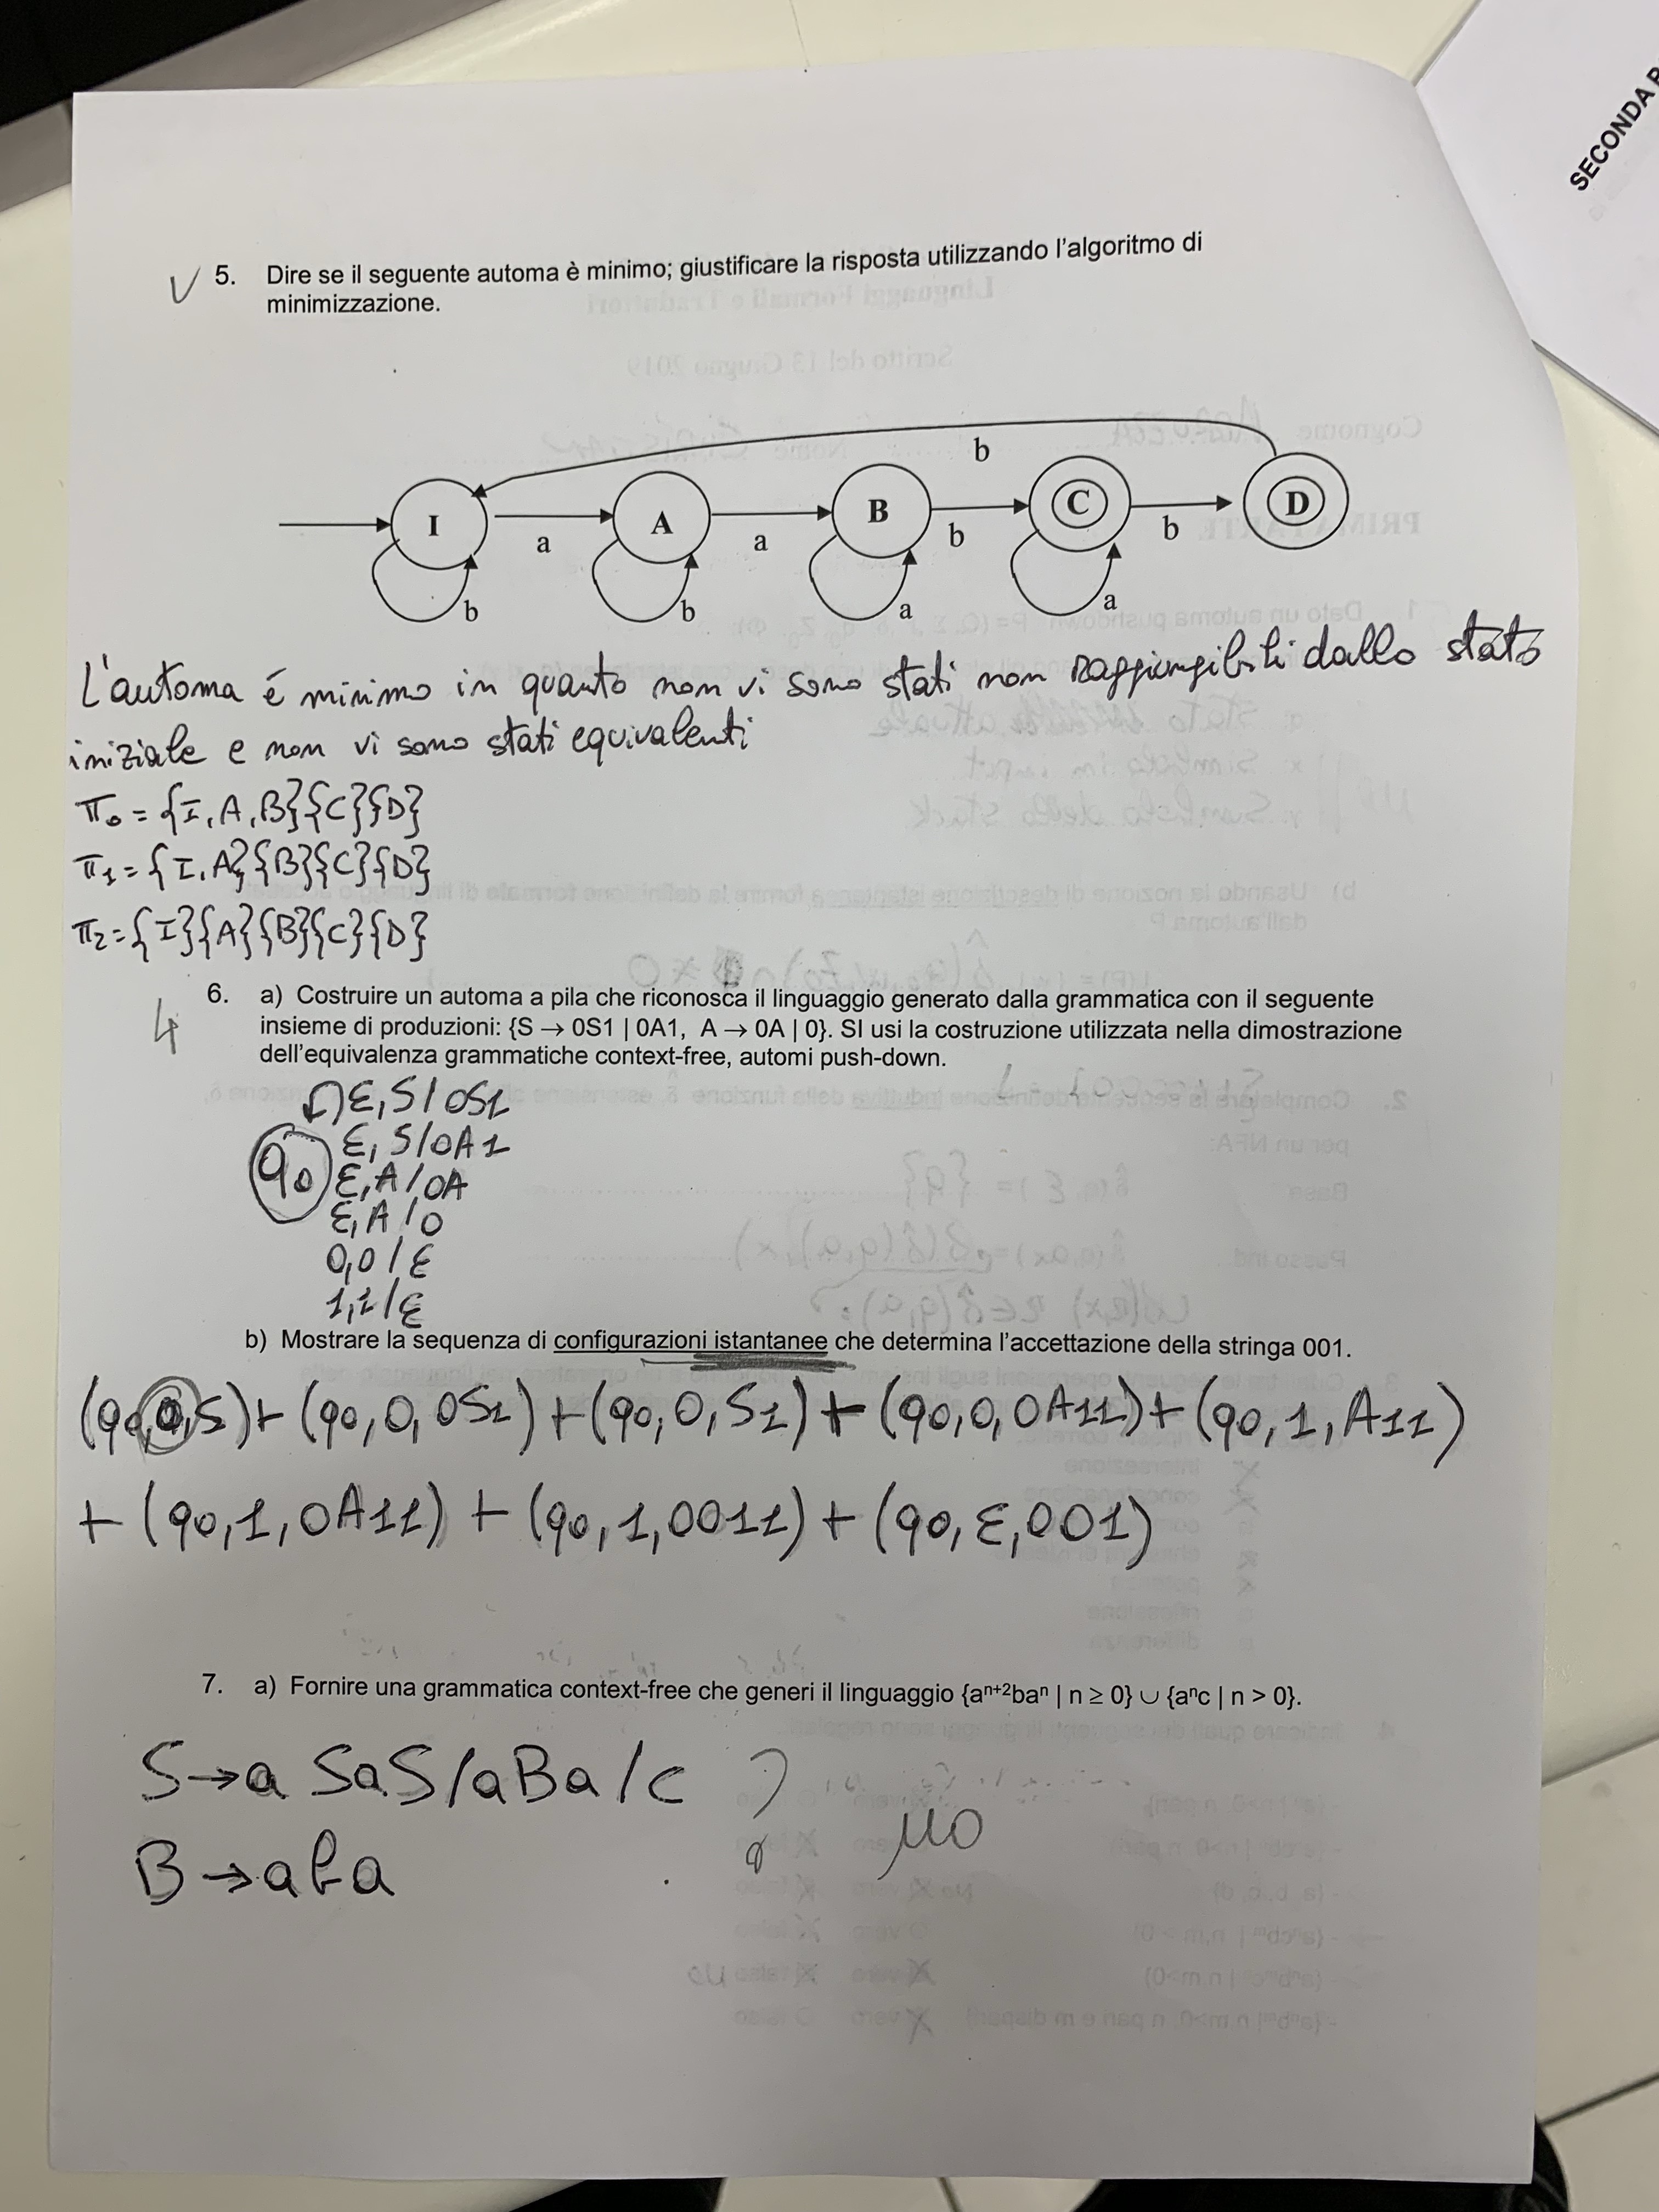 SECONDA P
V 5. Dire se il seguente automa è minimo; giustificare la risposta utilizzando l'algoritmo di
minimizzazione.
b
I A B C D
a a b b
b b a a
L'automa é minimo in quanto non vi sono stati non raggiungibili dallo stato
iniziale e non vi sono stati equivalenti
π0 = {I, A, B}{C}{D}
π1 = {I, A}{B}{C}{D}
π2 = {I}{A}{B}{C}{D}
4 6. a) Costruire un automa a pila che riconosca il linguaggio generato dalla grammatica con il seguente
insieme di produzioni: {S → 0S1 | 0A1, A → 0A | 0}. SI usi la costruzione utilizzata nella dimostrazione
dell'equivalenza grammatiche context-free, automi push-down.
ε, S / 0S1
ε, S/0A1
q0 ε, A / 0A
ε, A / 0
0,0 / ε
1,1 / ε
b) Mostrare la sequenza di configurazioni istantanee che determina l'accettazione della stringa 001.
(q0,0,S) + (q0, 0, 0S1) + (q0, 0, S1) + (q0, 0, 0A11) + (q0, 1, A11)
+ (q0, 1, 0A11) + (q0, 1, 0011) + (q0, ε, 001)
7. a) Fornire una grammatica context-free che generi il linguaggio {aⁿ⁺²baⁿ | n ≥ 0} ∪ {aⁿc | n > 0}.
S → a SaS / aBa / c ?
NO
B → aba